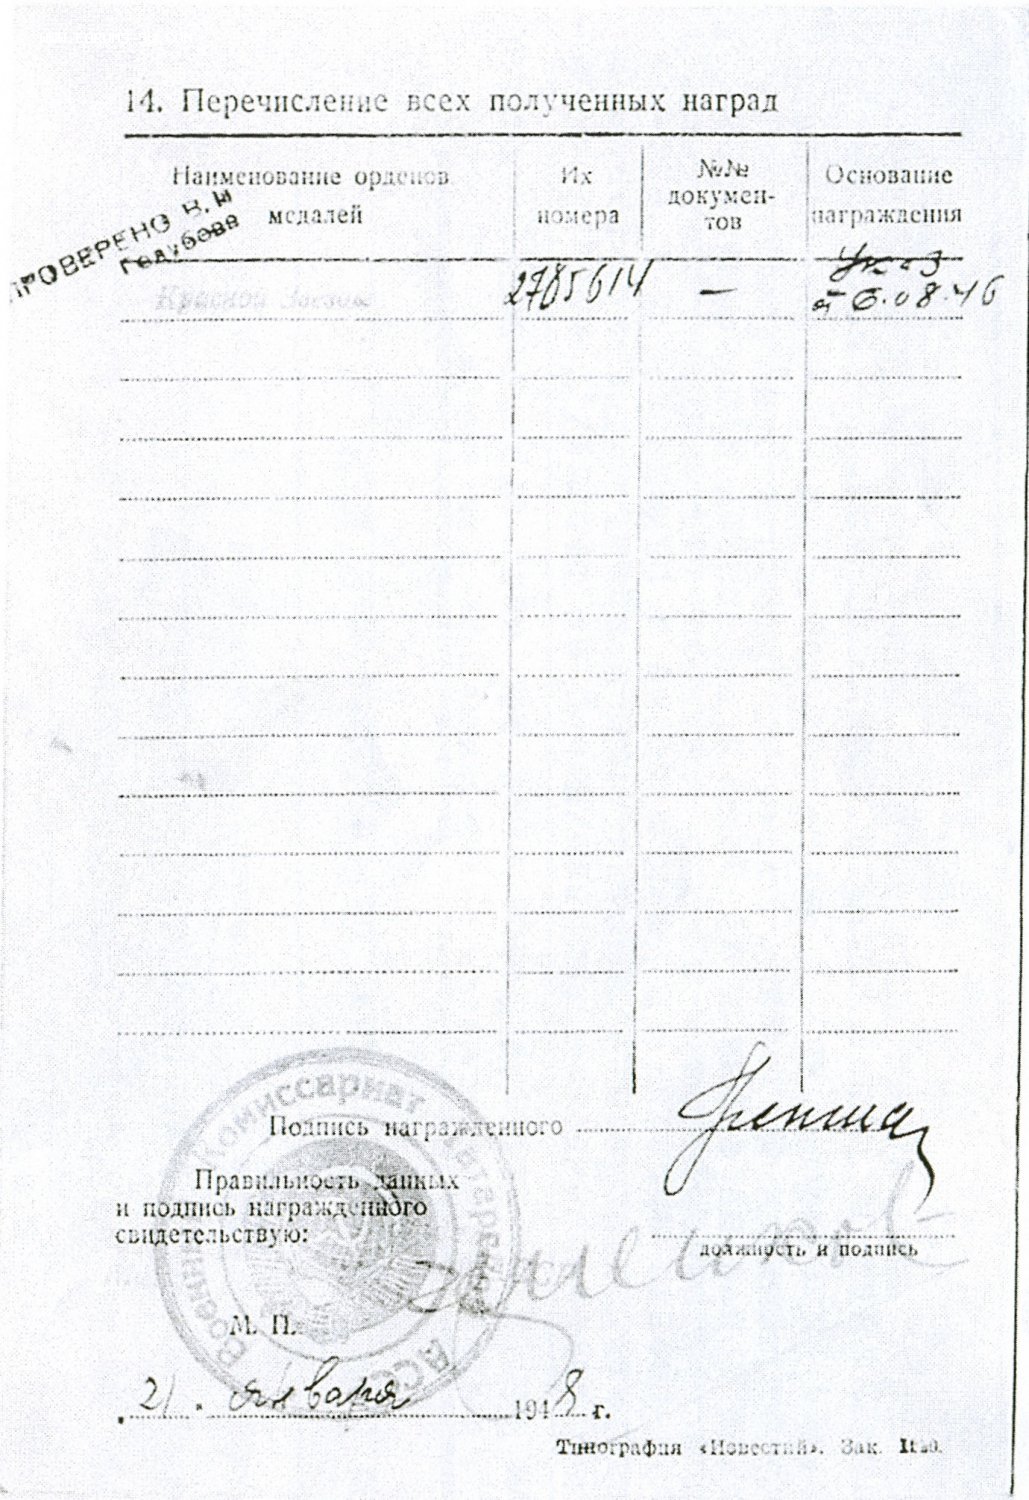 14. Перечисление всех полученных наград
Наименование орденов,
медалей
Их
номера
№№
докумен-
тов
Основание
награждения
ПРОВЕРЕНО В.И
Голубева
Красной Звезды
2785614
—
Указ
от 6.08.46
Военный Комиссариат
Подпись награжденного
Правильность данных
и подпись награжденного
свидетельствую:
должность и подпись
М. П.
21 января 1948 г.
Типография «Известий». Зак.